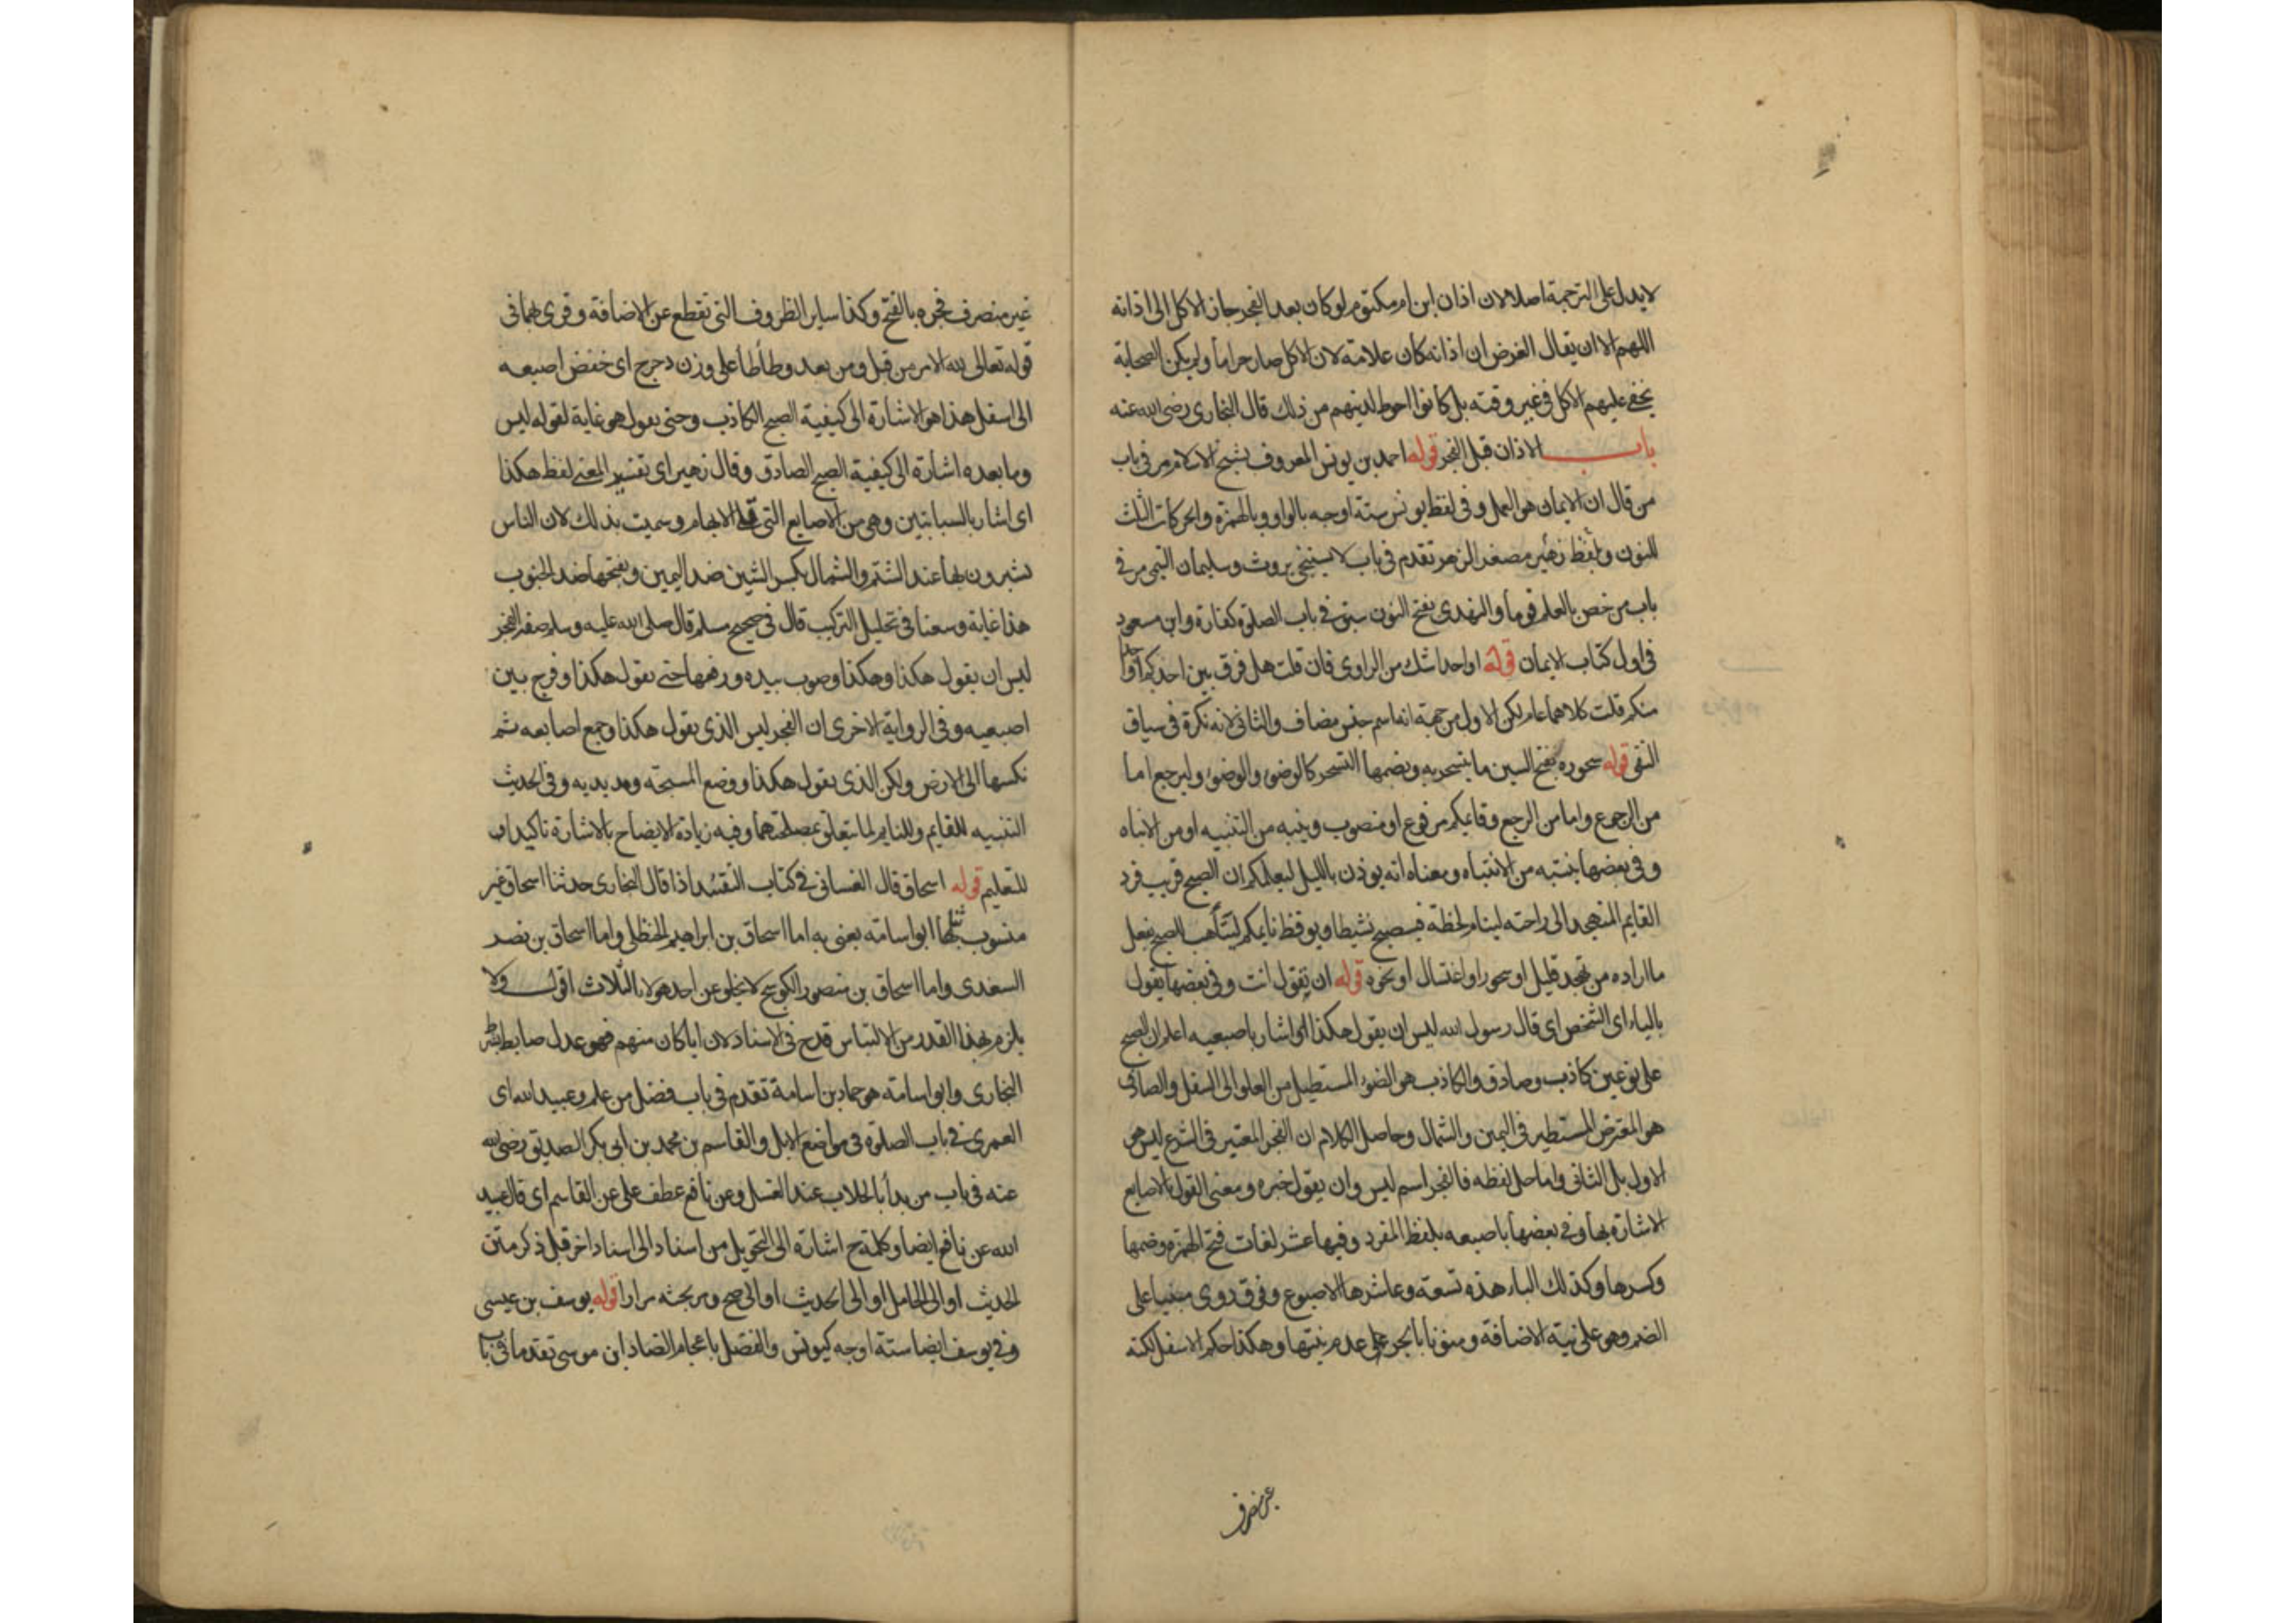 لا يدل على الترجمة اصلا لان اذان ابن ام مكتوم لو كان بعد الفجر جاز الاكل الى اذانه
اللهم الا ان يقال الغرض ان اذانه كان علامة لان الاكل صار حراما ولم يكن الصحابة
يخفى عليهم الاكل في غير وقته بل كانوا احوط لدينهم من ذلك قال البخاري رضى الله عنه
باب الاذان قبل الفجر قوله احمد بن يونس المعروف بشيخ الاسلام مر في باب
من قال ان الايمان هو العمل وفى لفظ يونس ستة اوجه بالواو وبالهمزة والحركات الثلث
للنون ولفظ زهير مصغر الزهر تقدم في باب لا يستنجى بروث وسليمان التيمى مر في
باب من خص بالعلم قوما والنهدى بفتح النون سبق في باب الصلوة كفارة وابن مسعود
في اول كتاب الايمان قوله او احدا شك من الراوى فان قلت هل فرق بين احدكم او احدا
منكم قلت كلاهما عام لكن الاول من جهة انه اسم جنس مضاف والثانى لانه نكرة في سياق
النفى قوله سحوره بفتح السين ما يتسحر به وبضمها التسحر كالوضوء والوضوء وليرجع اما
من الرجوع واما من الرجع وقايمكم مرفوع او منصوب وينبه من التنبيه او من الانباه
وفى بعضها ينتبه من الانتباه ومعناه انه يوذن بالليل ليعلمكم ان الصبح قريب فرد
القايم المتهجد الى راحته لينام لحظة فيصبح نشيطا ويوقظ نايمكم ليتأهب للصبح بفعل
ما اراده من تهجد قليل او سحور او اغتسال او نحوه قوله ان تقول انت وفى بعضها يقول
بالياء اى الشخص اى قال رسول الله ليس ان يقول هكذا او اشار باصبعيه اعلم ان الصبح
على نوعين كاذب وصادق والكاذب هو الضوء المستطيل من العلو الى السفل والصادق
هو المعترض المستطير في اليمين والشمال وحاصل الكلام ان الفجر المعتبر في الشرع ليس هو
الاول بل الثانى واما حل لفظه فالفجر اسم ليس وان يقول خبره ومعنى القول بالاصابع
الاشارة بها وفى بعضها باصبعه بلفظ المفرد وفيها عشر لغات فتح الهمزة وضمها
وكسرها وكذلك الباء هذه تسعة وعاشرها الاصبوع وفوق روى مبنيا على
الضم وهو على نية الاضافة ومنونا بالجر على عدم نيتها وهكذا حكم الاسفل لكنه
غير منصرف
غير منصرف فجره بالفتح وكذا ساير الظروف التى تقطع عن الاضافة وقرى بهما في
قوله تعالى لله الامر من قبل ومن بعد وطأطأ على وزن دحرج اى خفض اصبعه
الى اسفل هذا هو الاشارة الى كيفية الصبح الكاذب وحتى يقول هو غاية لقوله ليس
وما بعده اشارة الى كيفية الصبح الصادق وقال زهير اى تفسير المعنى لفظ هكذا
اى اشار بالسبابتين وهى من الاصابع التى تلى الابهام وسميت بذلك لان الناس
يشيرون بها عند الشتم والشمال بكسر الشين ضد اليمين وبفتحها ضد الجنوب
هذا غاية وسعنا في تحليل التركيب قال في صحيح مسلم قال صلى الله عليه وسلم صفة الفجر
ليس ان يقول هكذا وهكذا وصوب بيده ورفعها حتى يقول هكذا وفرج بين
اصبعيه وفى الرواية الاخرى ان الفجر ليس الذى يقول هكذا وجمع اصابعه ثم
نكسها الى الارض ولكن الذى يقول هكذا ووضع المسبحة ومد يديه وفى الحديث
التنبيه للقايم وللنايم لما يتعلق بمصلحتهما وفيه زيادة الايضاح بالاشارة تاكيدا
للتعليم قوله اسحاق قال الغسانى في كتاب التقييد اذا قال البخارى حدثنا اسحاق غير
منسوب حدثنا ابو اسامة يعنى به اما اسحاق بن ابراهيم الحنظلى واما اسحاق بن نصر
السعدى واما اسحاق بن منصور الكوسج لا يخلو عن احد هولاء الثلاث اقول ولا
يلزم بهذا القدر من الالتباس قدح في الاسناد لان ايا كان منهم فهو عدل ضابط بشرط
البخارى وابو اسامة هو حماد بن اسامة تقدم في باب فضل من علم وعبيد الله اى
العمرى في باب الصلوة في مواضع الابل والقاسم بن محمد بن ابى بكر الصديق رضى الله
عنه في باب من بدأ بالحلاب عند الغسل وعن نافع عطف على عن القاسم اى قال عبيد
الله عن نافع ايضا وكلمة ح اشارة الى التحويل من اسناد الى اسناد اخر قبل ذكر متن
الحديث او الى الحامل او الى الحديث او الى صح ومر بحثه مرارا قوله يوسف بن عيسى
وفى يوسف ايضا ستة اوجه كيونس والفضل باعجام الضاد ابن موسى تقدما في باب